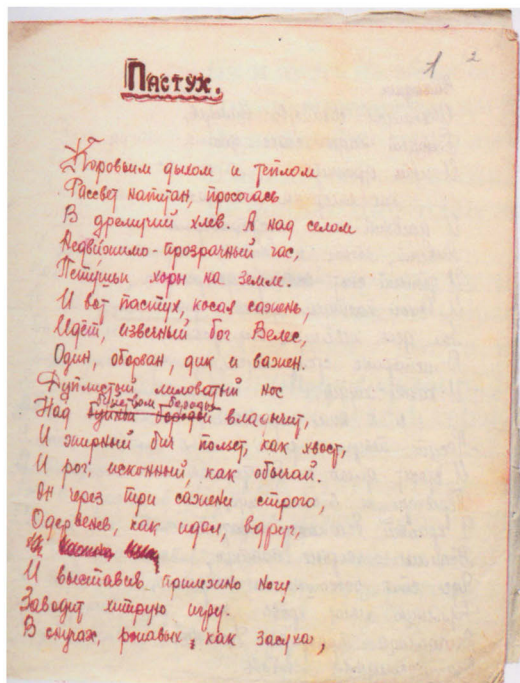 1 2
Пастух.
Коровьим дыхом и теплом
Рассвет напитан, просочась
В дремучий хлев. А над селом
Недвижимо-прозрачный час,
Петушьи хоры на земле.
И вот пастух, косая сажень,
Идёт, извечный бог Велес,
Один, оборван, дик и важен.
Дуплистый лиловатый нос
бороды
Над буйной бородой владычит,
И жирный бич ползет, как хвост,
И рог, исконный, как обычай.
Он через три сажени строго,
Одеревенев, как идол, вдруг,
И выставив прилежно ногу
Заводит хитрую игру.
В звуках, как засуха,